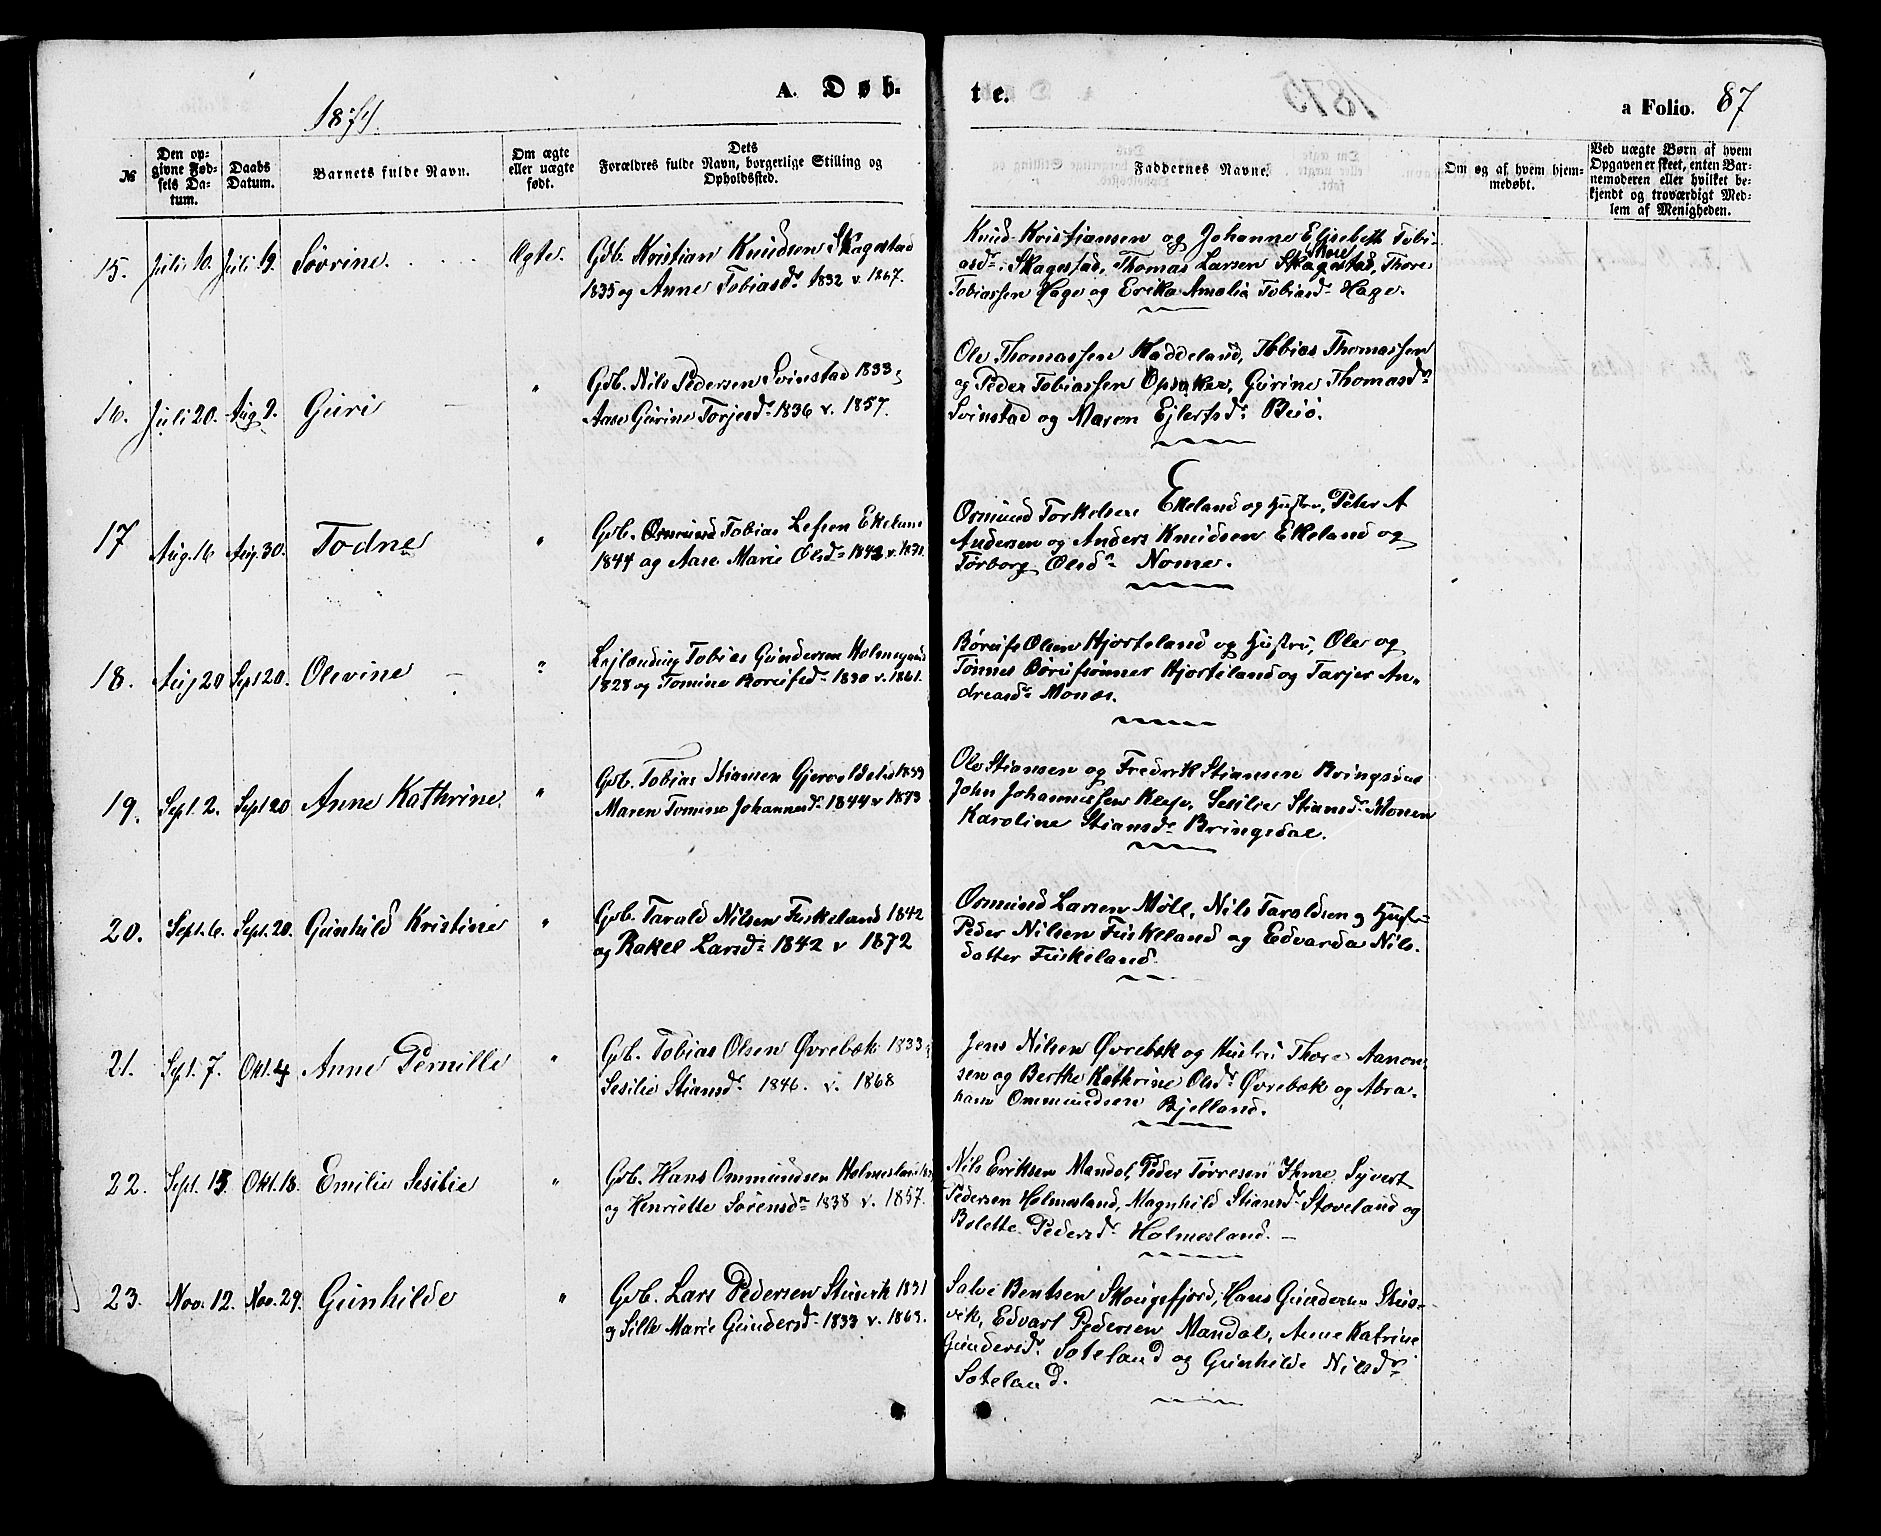 1874.
A. Døb-
te.
a Folio. 87
№
Den op-
givne Fød-
sels Da-
tum.
Daabs
Datum.
Barnets fulde Navn.
Om ægte
eller uægte
født.
Dets
Forældres fulde Navn, borgerlige Stilling og
Opholdssted.
Faddernes Navne.
Om og af hvem hjem-
medøbt.
Ved uægte Børn af hvem
Opgaven er skeet, enten Bar-
nemoderen eller hvilket be-
kjendt og troværdigt Med-
lem af Menigheden.
15. Juli 6. Juli 19. Sovrine. Ægte.
Gdb. Kristian Knudsen Skagestad
1835 og Anne Tobiasd. 1832 v. 1867.
Knud Kristiansen og Johanne Elisabeth Tobi-
asd. Skagestad, Thomas Larsen Skagestad, Thore
Tobiassen Hage og Erika Amalia Tobiasd. Hage.
16. Juli 20. Aug 9. Guri "
Gdb. Nils Pedersen Svinstad 1833 og
Aase Gurine Torjesd. 1836 v. 1857.
Ole Thomassen Haddeland, Tobias Thomassen
og Peder Tobiassen Opsaker, Gurine Thomasdr
Svinstad og Maren Ejlertsd. Beiö.
17 Aug. 16 Aug. 30. Todne "
Gdb. Osmund Tobias Lefsen Ekeland
1844 og Aase Marie Olsd. 1842 v.
Osmund Torkelsen Ekeland og Hustru, Peter A
Andersen og Anders Knudsen Ekeland og
Torborg Olsdr Nome.
18. Aug 20 Sept 20. Olevine "
Lejlænding Tobias Gundersen
1828 og Tomine Boreifsd. 1830 v. 1861.
Børeifs Olsen Hjorteland og Hustru, Ole og
Tønnes Børeifsønner Hjorteland og Tarjer An-
dreasd. Monæs.
19. Sept. 2. Sept 20 Anne Kathrine. "
Gdb. Tobias Stiansen 1839
Maren Tomine Johannesd. 1844 v 1873
Ole Stiansen og Fredrik Stiansen Bringsdal
John Johannessen Kleve, Sesilie Stiansd. Monen
Karoline Stiansd. Bringsdal.
20. Sept. 6. Sept. 20. Gunhild Kristine "
Gdb. Tarald Nilsen Fuskeland 1842
og Rakel Larsd. 1842 v 1872
Osmund Larsen Møll, Nils Taraldsen og Hustr.
Peder Nilsen Fuskeland og Edvarda Nils-
datter Fuskeland.
21. Sept. 7. Okt. 4 Anne Pernille "
Gdb. Tobias Olsen Øvrebæk 1833 og
Sesilie Stiansd. 1846. v. 1868
Jens Nilsen Øvrebæk og Hustru Thore Aanon-
sen og Berthe Kathrine Olsdr Øvrebæk og Abra-
ham Ommundsen Bjelland.
22. Sept. 13. Okt. 18. Emilie Sesilie "
Gdb. Hans Ommundsen Holmesland
og Henriette Sørensdr 1838 v. 1857.
Nils Eriksen Mandal, Peder Torresen Ihme, Syvert
Pedersen Holmesland, Magnhild Stiansd. Stoveland og
Bolette Pedersd. Holmesland.
23. Nov. 12. Nov. 29. Gunhilde "
Gdb. Lars Pedersen Stusvik 1831
og Sille Marie Gundersd. 1833 v. 1863.
Salve Bentsen Skougefjord, Hans Gundersen Stus-
vik, Edvart Pedersen Mandal, Anne Katrine
Gundersd. Søteland og Gunhilde Nilsdr
Søteland.